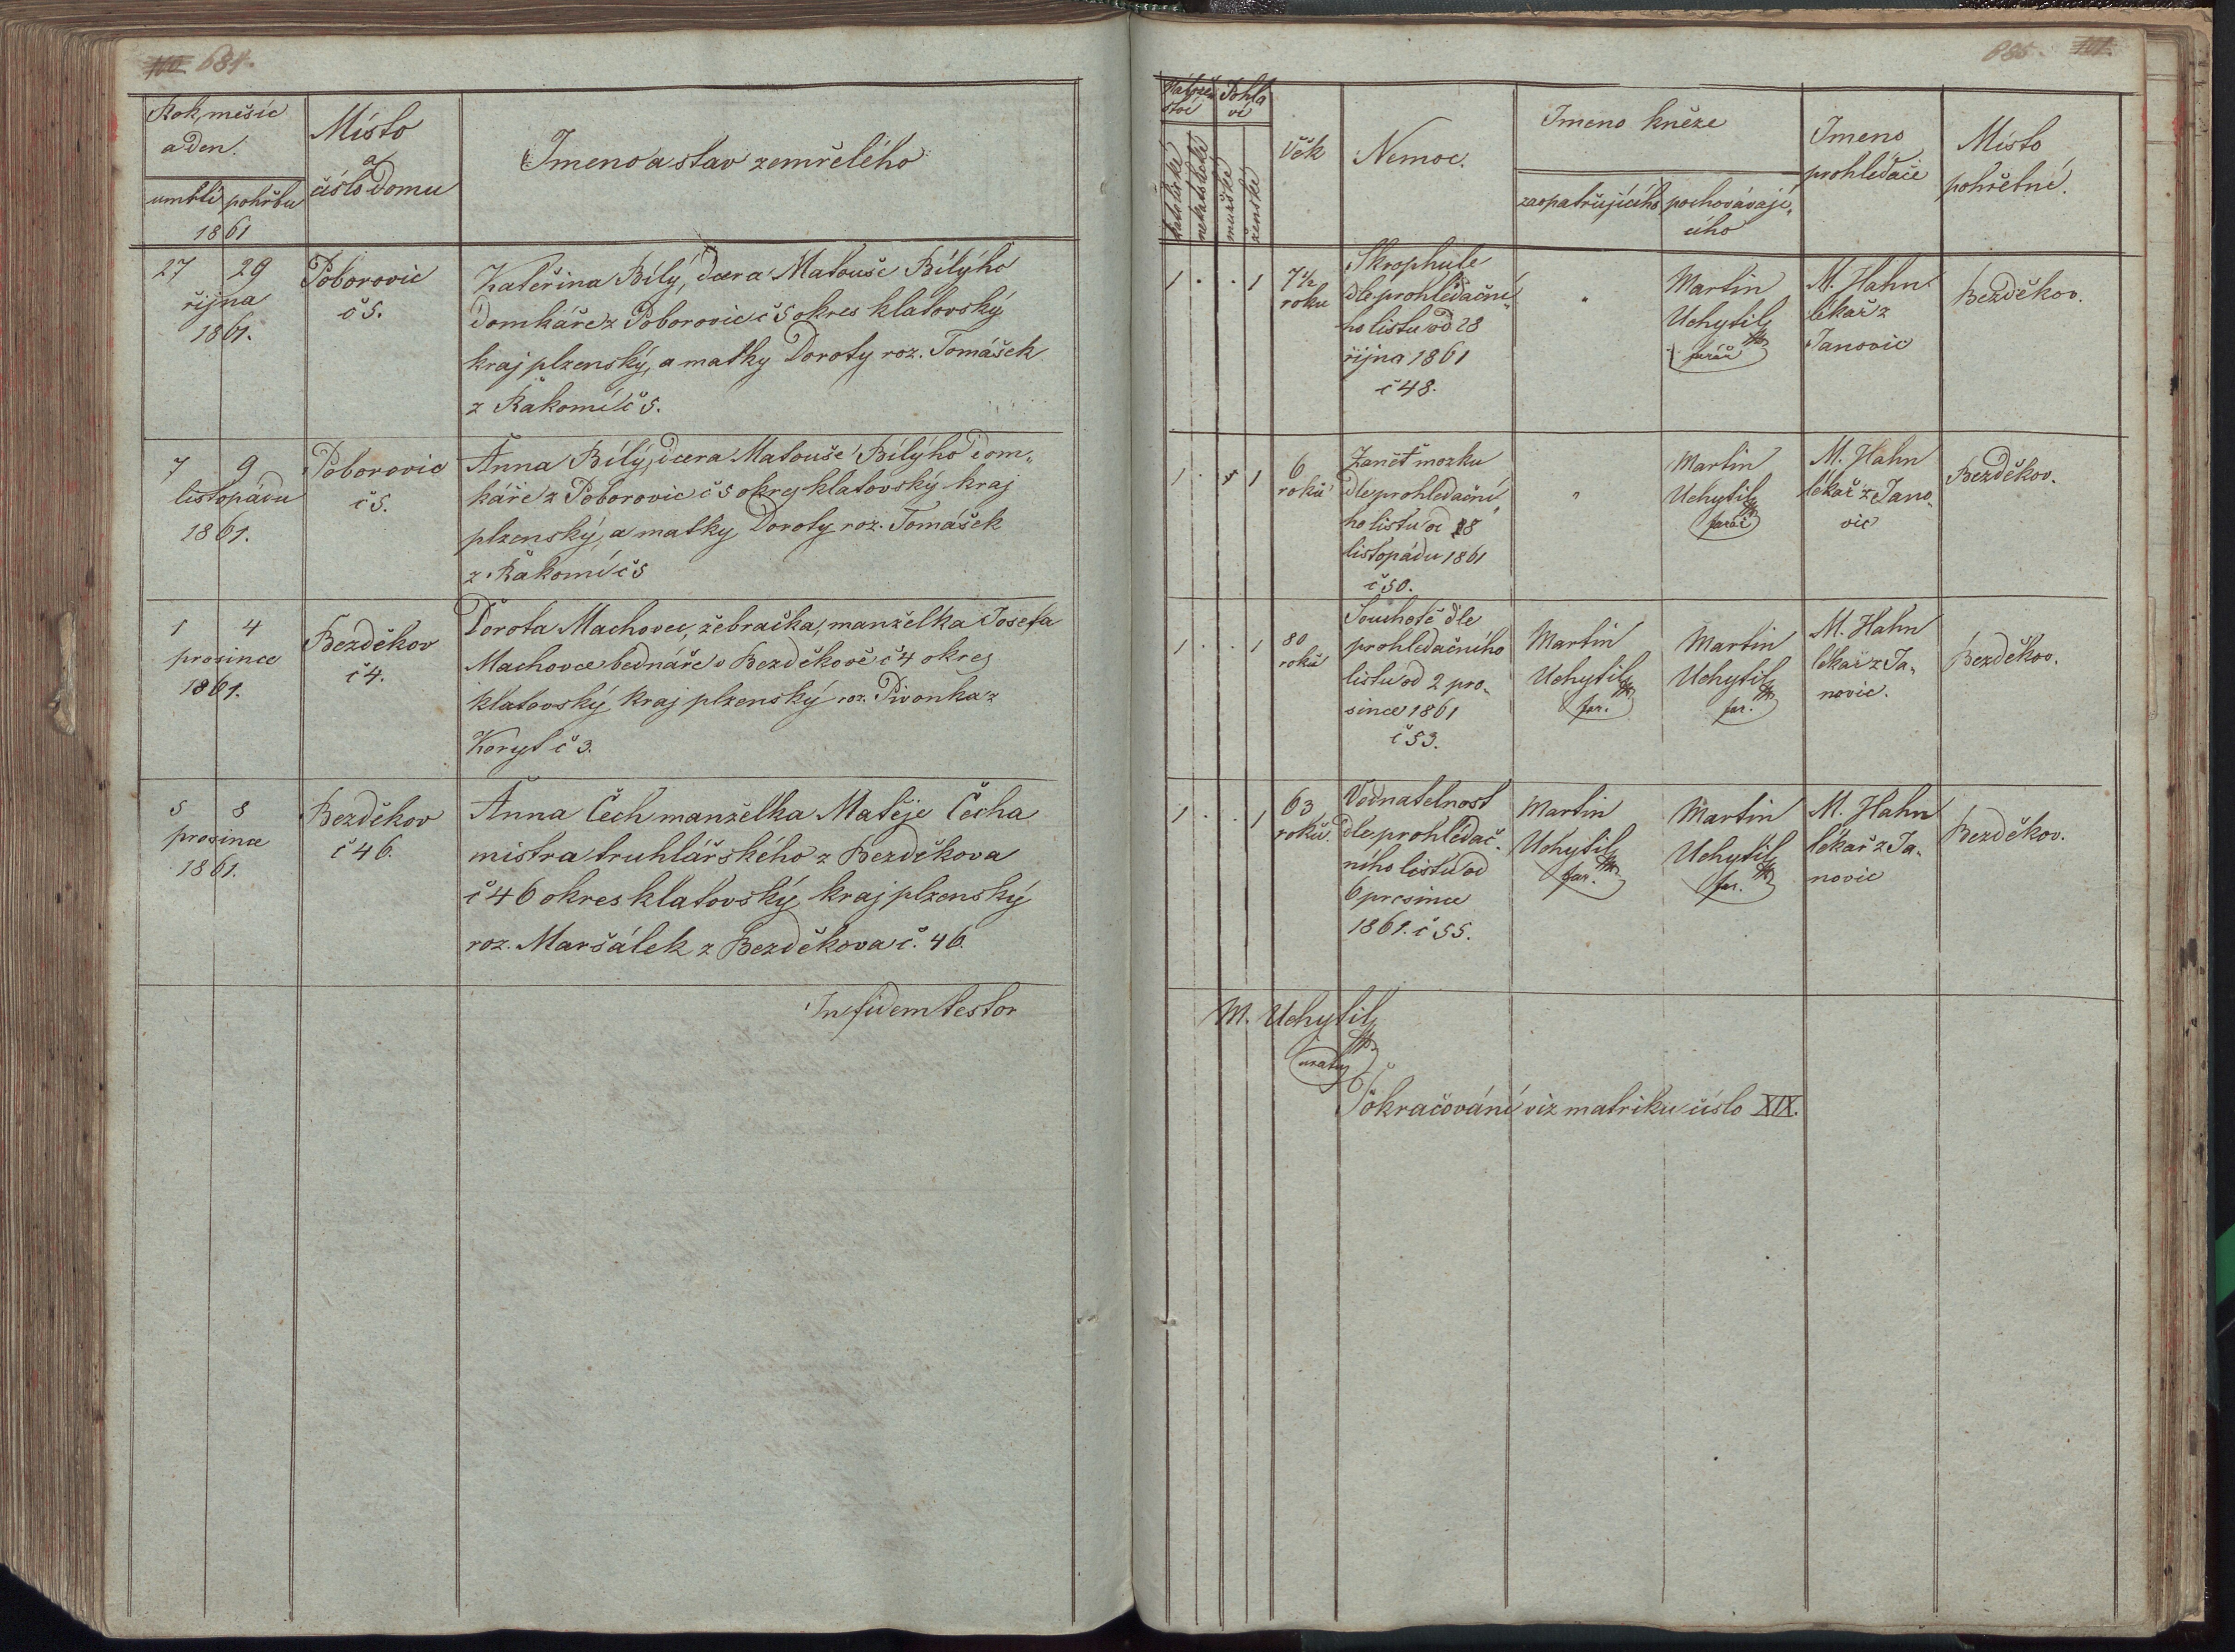 100 684.
Rok, měsíc
a den.
umrtí pohřbu
1861
Místo
a
číslo domu
Jmeno a stav zemřelého
27 29
října
1861.
Poborovic
č 5.
Kateřina Bílý, dcera Matouše Bílýho
domkáře z Poborovic č 5 okres klatovský
kraj plzenský, a matky Doroty roz. Tomášek
z Řakomí č 5.
7 9
listopádu
1861.
Poborovic
č 5.
Anna Bílý, dcera Matouše Bílýho dom„
káře z Poborovic č 5 okres klatovský kraj
plzenský, a matky Doroty roz. Tomášek
z Řakomí č 5
1 4
prosince
1861.
Bezděkov
č 4.
Dorota Machovec, žebračka, manželka Josefa
Machovce bednáře v Bezděkově č 4 okres
klatovský kraj plzenský roz. Pivonka z
Koryt č 3.
5 8
prosince
1861.
Bezděkov
č 46.
Anna Čech manželka Matěje Čecha
mistra truhlářského z Bezděkova
č 46 okres klatovský, kraj plzenský
roz. Maršálek z Bezděkova č. 46.
In fidem testor
685. 101.
Nábožen
ství
Pohla
ví
katolické
nekatolické
mužské
ženské
Věk
Nemoc.
Jmeno kněze
zaopatřujícího
pochovávají„
cího
Jmeno
prohledače
Místo
pohřební.
1 . . 1
7½
roku
Skrophule
dle prohledační„
ho listu od 28
října 1861
č 48.
"
Martin
Uchytil
farář
M. Hahn
lékař z
Janovic
Bezděkov.
1 . . 1
6
roků
Zanět mozku
dle prohledační
ho listu od 8
listopádu 1861
č 50.
"
Martin
Uchytil
farář
M. Hahn
lékař z Jano„
vic
Bezděkov.
1 . . 1
80
roků
Souchotě dle
prohledačního
listu od 2 pro„
since 1861
č 53.
Martin
Uchytil
far.
Martin
Uchytil
far.
M. Hahn
lékař z Ja„
novic.
Bezděkov.
1 . . 1
63
roků.
Vodnatelnost
dle prohledač„
ního listu od
6 prosince
1861. č 55.
Martin
Uchytil
far.
Martin
Uchytil
far.
M. Hahn
lékař z Ja„
novic
Bezděkov.
M. Uchytil
Pokračování viz matriku číslo XIX.